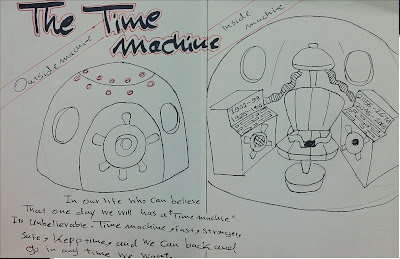 The Time
machine
Outside machine
Inside
machine
In our life who can believe
That one day we will has a "Time machie"
Its Unbelievable, Time machine, fast, stronger,
Safe, Kepp time, and we can back and
go in any time we want.